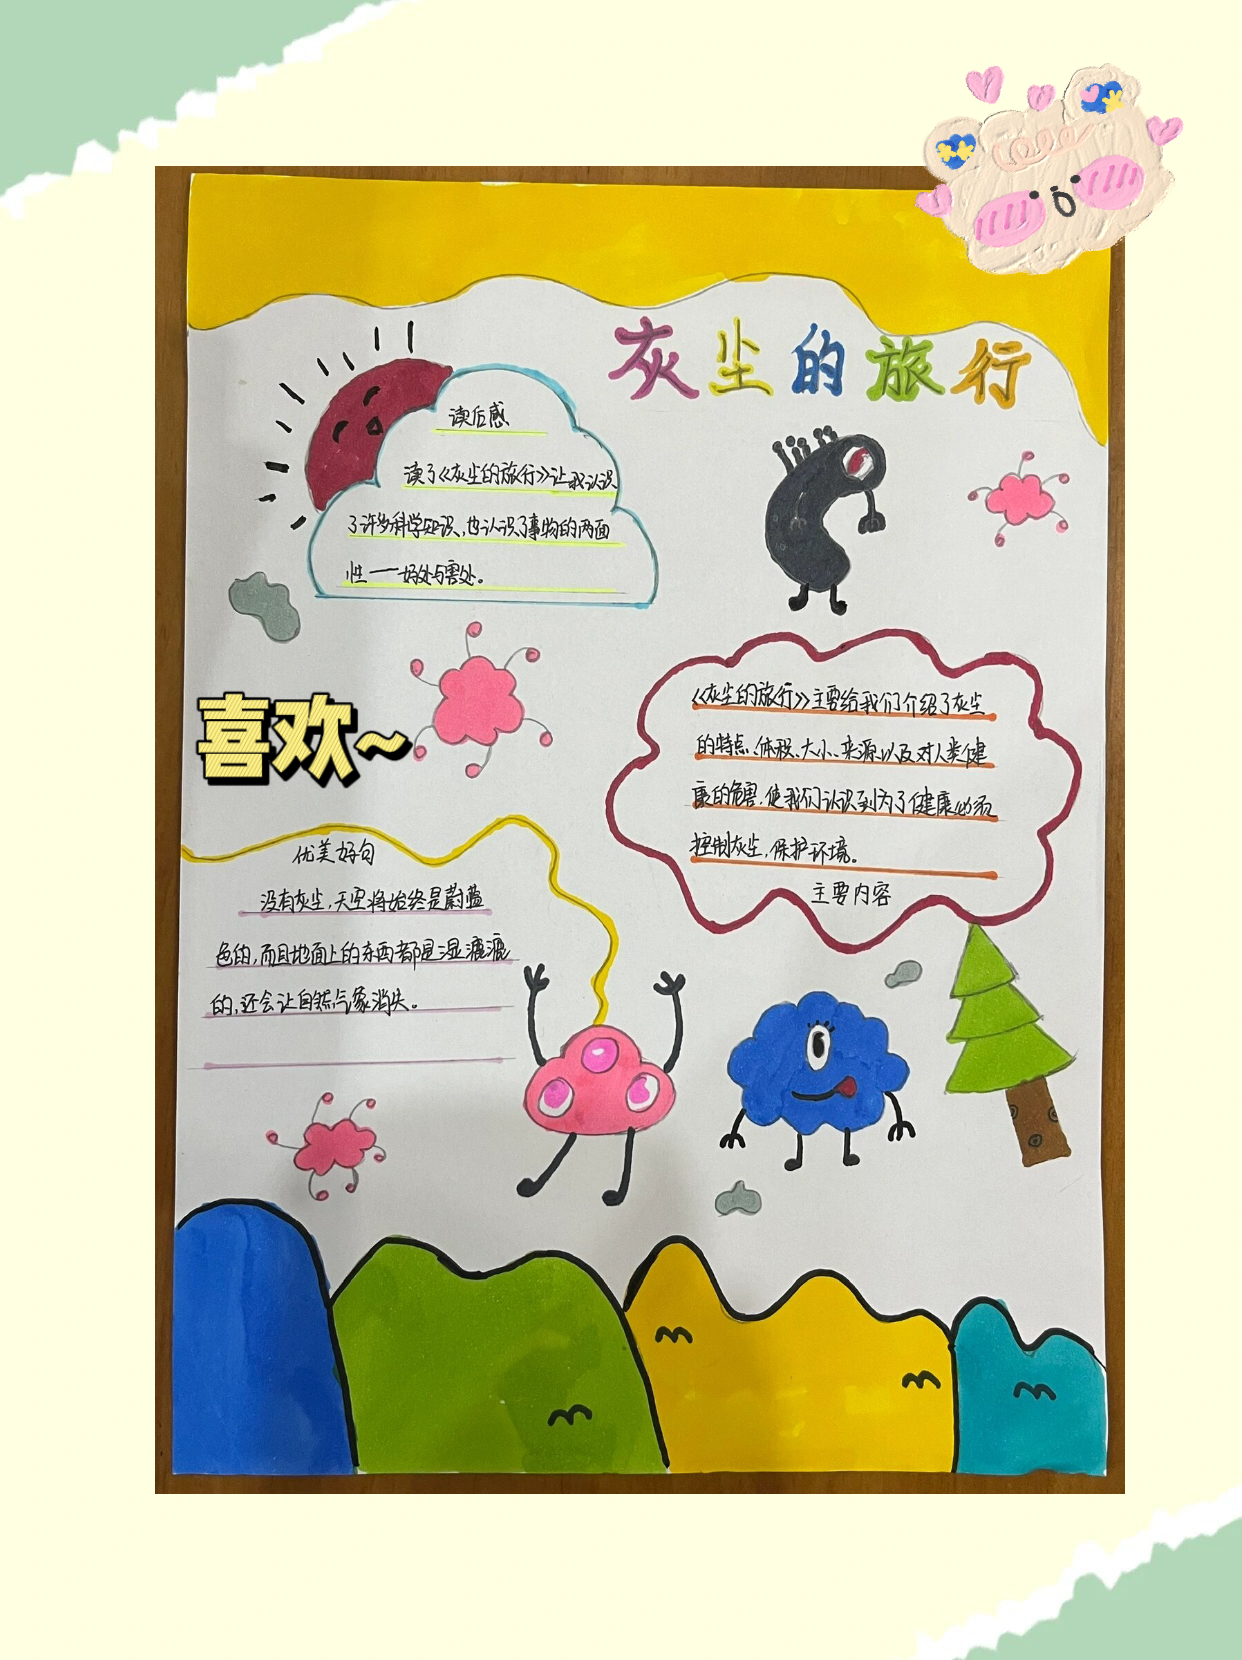 灰尘的旅行
读后感
读了《灰尘的旅行》让我认识
了许多科学知识，也认识了事物的两面
性——好处与害处。
喜欢~
《灰尘的旅行》主要给我们介绍了灰尘
的特点、体积、大小、来源以及对人类健
康的危害，使我们认识到为了健康必须
控制灰尘，保护环境。
主要内容
优美好句
没有灰尘，天空将始终是蔚蓝
色的，而且地面上的东西都是湿漉漉
的，还会让自然气象消失。